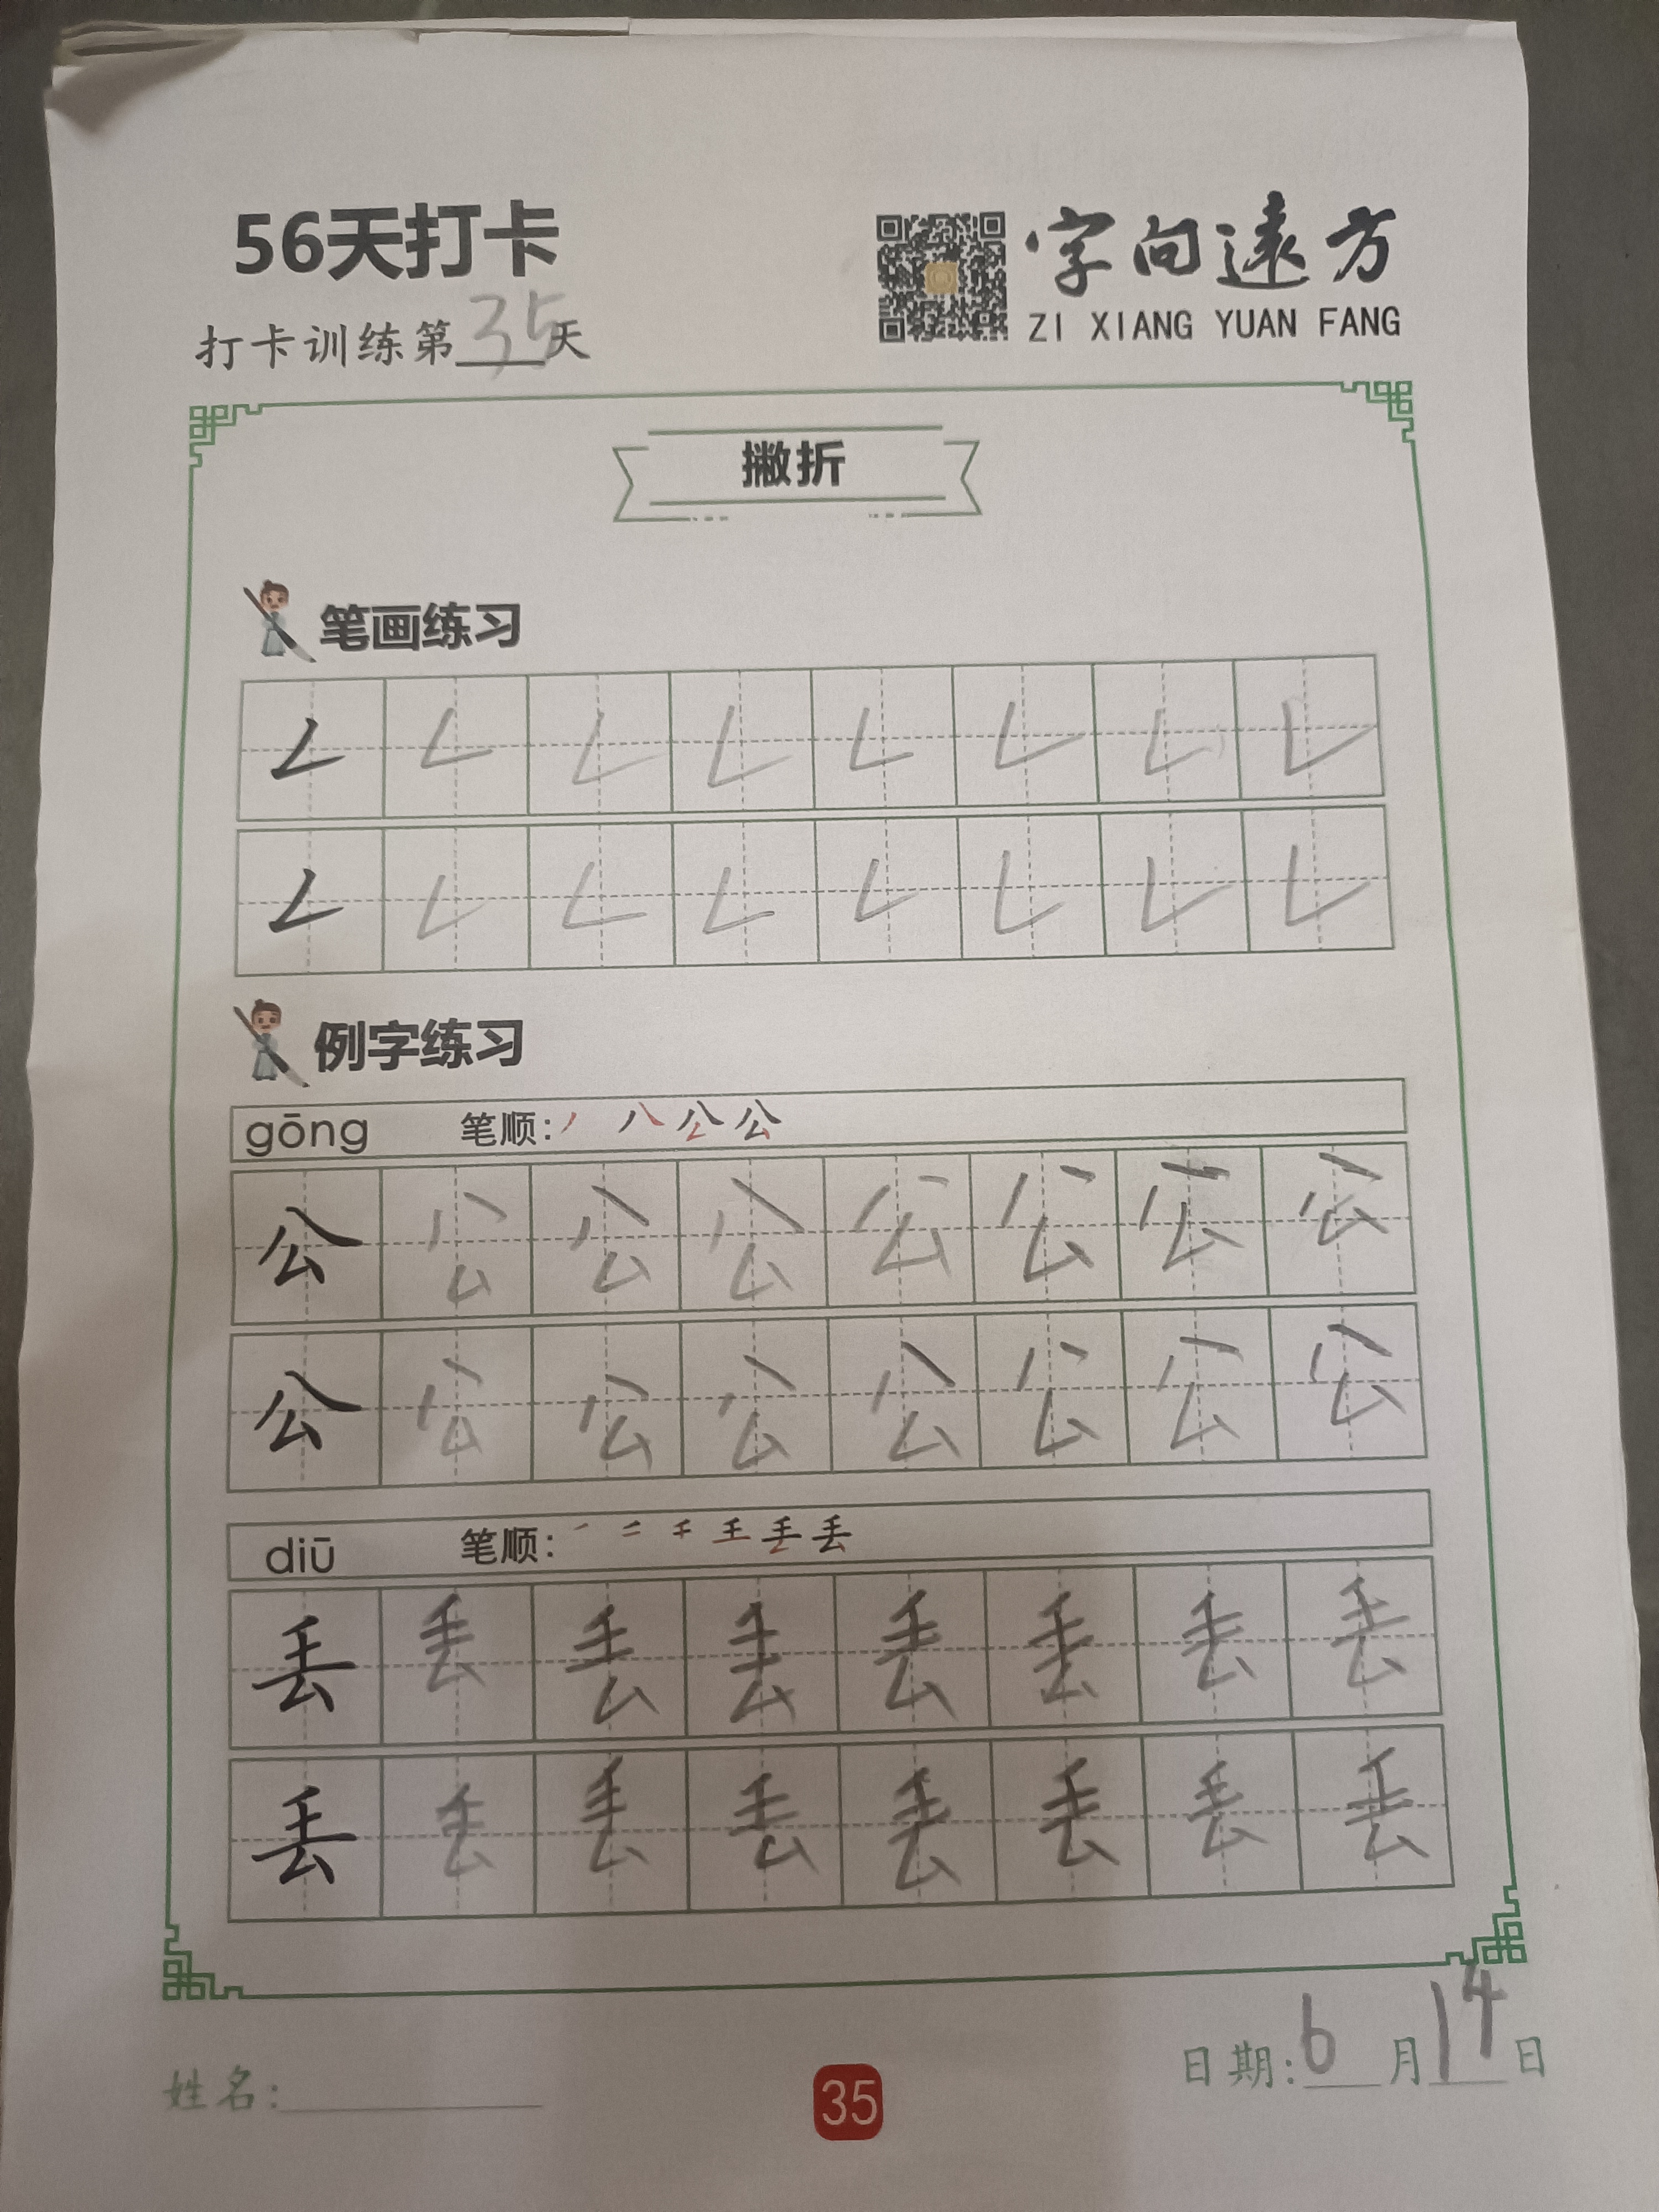 56天打卡
字向遠方
打卡训练第35天
ZI XIANG YUAN FANG
撇折
笔画练习
𠃋 𠃋 𠃋 𠃋 𠃋 𠃋 𠃋 𠃋
𠃋 𠃋 𠃋 𠃋 𠃋 𠃋 𠃋 𠃋
例字练习
gōng 笔顺: 丿 八 公 公
公 公 公 公 公 公 公 公
公 公 公 公 公 公 公 公
diū 笔顺: 一 二 千 王 丢 丢
丢 丢 丢 丢 丢 丢 丢 丢
丢 丢 丢 丢 丢 丢 丢 丢
姓名:
35
日期:6月14日